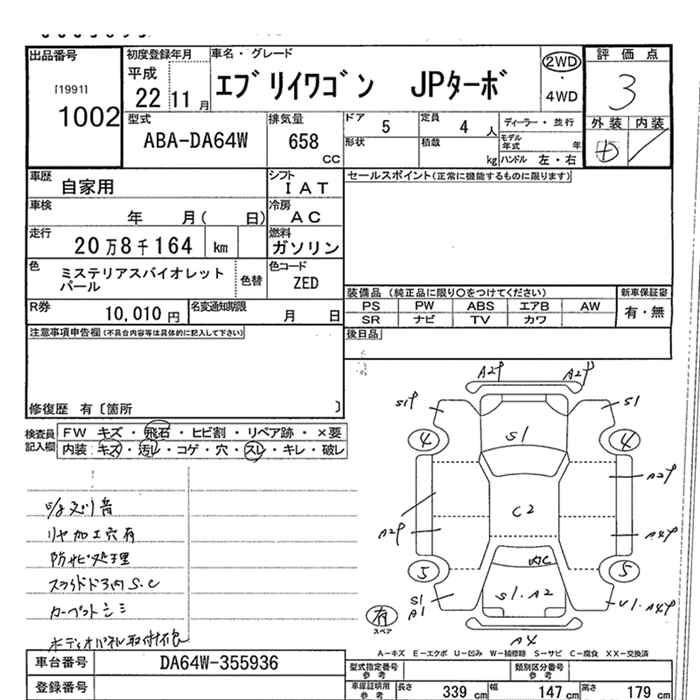 出品番号
[1991]
1002
初度登録年月
平成
22 11 月
車名・グレード
エブリイワゴン JPターボ
2WD
・
4WD
評価点
3
外装 内装
型式
ABA-DA64W
排気量
658
CC
ドア 5
定員 4 人
形状
積載 kg
ディーラー・並行
モデル年式 年
ハンドル 左・右
車歴
自家用
シフト
IAT
車検
年 月( 日)
冷房
AC
走行
20万8千164 km
燃料
ガソリン
色
ミステリアスバイオレット
パール
色替
色コード
ZED
R券
10,010 円
名変通知期限
月 日
セールスポイント(正常に機能するものに限ります)
装備品 (純正品に限り○をつけてください)
PS PW ABS エアB AW
SR ナビ TV カワ
新車保証書
有・無
後日品
注意事項申告欄(不具合内容等は具体的に記入して下さい)
修復歴 有〔箇所 〕
検査員
記入欄
FW キズ・飛石・ヒビ割・リペア跡・×要
内装・キズ・汚レ・コゲ・穴・スレ・キレ・破レ
リヤ加工穴有
防サビ処理
スライドドア内S.C
カーペットシミ
ボディオパネル取付有
A2P
A2P
S1P
S1
4
4
S1
A2P
A2P
C2
A4P
5
5
S1・A2
S1
A1
U1・A4P
A4
有
スペア
A－キズ E－エクボ U－凹み W－補修跡 S－サビ C－腐食 XX－交換済
車台番号
DA64W-355936
登録番号
型式指定番号
参考
類別区分番号
参考
車庫証明用
参考
長さ 339 cm
幅 147 cm
高さ 179 cm